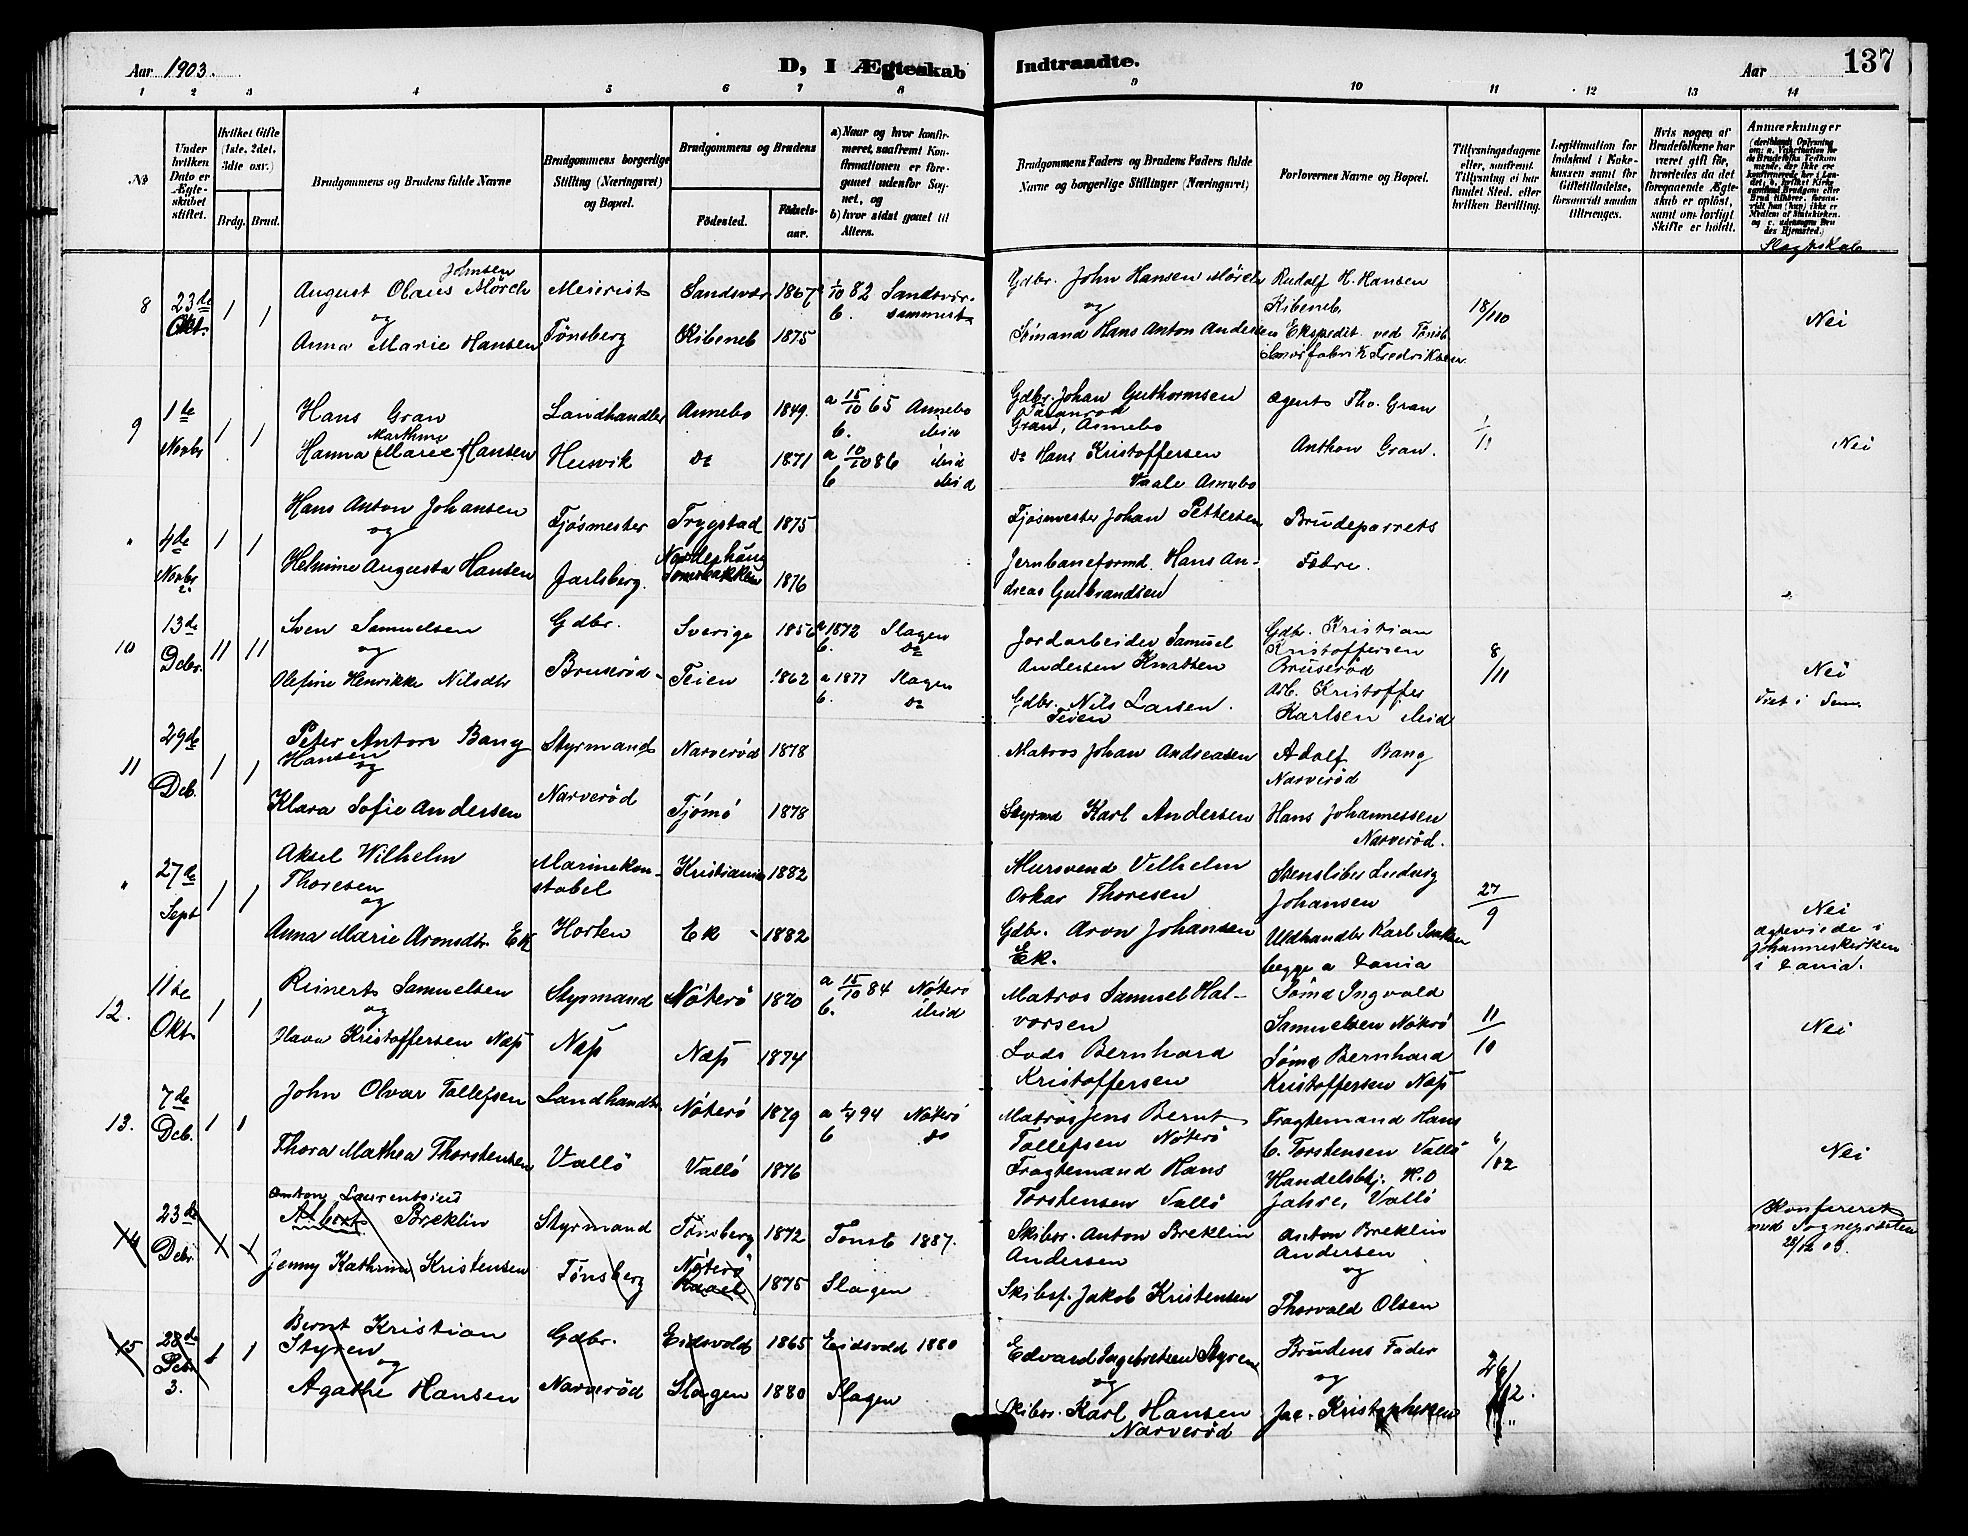 Aar 1903.
D, I Ægteskab Indtraadte.
Aar
137
1 2 3 4 5 6 7 8 9 10 11 12 13 14
No
Under hvilken Dato er Ægteskabet stiftet.
Hvilket Gifte (1ste, 2det, 3die osv.)
Brdg. Brud.
Brudgommens og Brudens fulde Navne
Brudgommens borgerlige Stilling (Næringsvei) og Bopæl.
Brudgommens og Brudens
Fødested.
Fødselsaar.
a) Naar og hvor konfirmeret, saafremt Konfirmationen er foregaaet udenfor Sognet, og
b) hvor sidst gaaet til Alters.
Brudgommens Faders og Brudens Faders fulde Navne og borgerlige Stillinger (Næringsvei)
Forlovernes Navne og Bopæl.
Tillysningsdagene eller, saafremt Tillysning ei har fundet Sted, efter hvilken Bevilling.
Legitimation for Indskud i Enkekassen samt for Giftetilladelse, forsaavidt saadan tiltrænges.
Hvis nogen af Brudefolkene har været gift før, hvorledes da det foregaaende Ægteskab er opløst, samt om lovligt Skifte er holdt.
Anmærkninger
Slagtskab
8 23de Okt. 1 1
August Olaus Johnsen Mörch
og
Anna Marie Hansen
Meierist
Tønsberg
Sandsvær 1867
Kibeneb 1875
1/10 82 Sandsvær.
b. sammest
Gdbr. John Hansen Mörch
og
Sømand Hans Anton Andersen
Rudolf H. Hansen
Kibeneb.
Ekspedit. ved Tønsb.
Smörfabrik Fredriksen
18/10
Nei
9 1te Novbr 1 1
Hans Gran
Hanna (Marie Marthine) Hansen
Landhandler
Husvik
Annebo 1849.
do 1871
a 15/10 65 Annebo
b. ibid
a 10/10 86 ibid
b ibid
Gdbr. Johan Guthormsen
Gran, Annebo
do Hans Kristoffersen
Vaale Annebo
Agent Tho. Gran
Anthon Gran.
1/11
Nei
" 4de Novbr 1 1
Hans Anton Johansen
og
Helmine Augusta Hansen
Fjøsmester
Jarlsberg.
Trygstad 1875
Norderhaug
1876
Fjøsmester Johan Pettersen
Jernbaneformd. Hans Andreas Gulbrandsen
Brudeparrets
Fædre.
10 13de Debr. 11 11
Sven Samuelsen
og
Olefine Henrikke Nilsdtr
Gdbr.
Bruserød
Sverige 1856
Teien 1862
a 1872 Slagen
b. do
a 1877 Slagen
b. do
Jordarbeider Samuel
Andersen Knatten
Gdbr. Nils Larsen.
Teien
Gdb. Kristian
Kristoffersen
Bruserød
Arb. Kristoffer
Karlsen ibid
8/11
Nei
Viet i Sem
11 29de Deb. 1 1
Peter Anton Bang
Hansen
og
Klara Sofie Andersen
Styrmand
Narverød
Narverød 1878
Tjømø 1878
Matros Johan Andreasen
Styrmd Karl Andersen
Adolf Bang
Narverød
Hans Johannessen
Narverød.
" 27de Sept 1 1
Aksel Wilhelm
Thoresen
og
Anna Marie Aronsdtr. Ek
Marinekonstabel
Horten
Kristiania 1882
Ek 1882
Mursvend Vilhelm
Oskar Thoresen
Gdbr. Aron Johansen
Ek.
Stensliber Ludvig
Johansen
Uldhandler Karl
begge a Xania
27/9
Nei
ægteviede i
Johanneskirken
i Xania.
12. 11te Okt. 1 1
Reinert Samuelsen
og
Olava Kristoffersen Næs
Styrmand
Næs
Nøterø 1870
Næs 1874
a 15/10 84 Nøterø
b. ibid
Matros Samuel Halvorsen
Lods Bernhard
Kristoffersen
Sømd Ingvald
Samuelsen Nøterø
Sømd Bernhard
Kristoffersen Næs
11/10
Nei
13. 7de Deb. 1 1
John Olvar Tollefsen
Thora Mathea Thorstensen
Landhandl.
Vallø
Nøterø 1879
Vallø 1876
a 94 Nøterø
b do
Matros Jens Bernt
Tollefsen Nøterø
Fragtemand Hans
Torstensen Vallø
Fragtemand Hans
C. Torstensen Vallø
Handelsbtj. H.O
Jahre, Vallø
6/12
Nei
14 23de Debr 1 1
Anton Laurentsius
Albert Breklin
Jenny Kathrine Kristensen
Styrmand
Tønsberg
Tønsberg 1872
Nøterø 1875
Tonsb 1887.
Slagen
Skibsr. Anton Breklin
Andersen
Skibsf. Jakob Kristensen
Anton Breklin
Andersen
og
Thorvald Olsen
Konfereret
med Sognepresten
28/12 03.
15 28de Debr 3. 1 1
Bernt Kristian
Styren
og
Agathe Hansen
Gdbr.
Narverød
Eidsvold 1865
Slagen 1880
Eidsvold 1880
Slagen
Edvard Ingebretsen Styren
og
Skibsr. Karl Hansen
Narverød
Brudens Fader
og
Jac. Kristophersen
26/12.